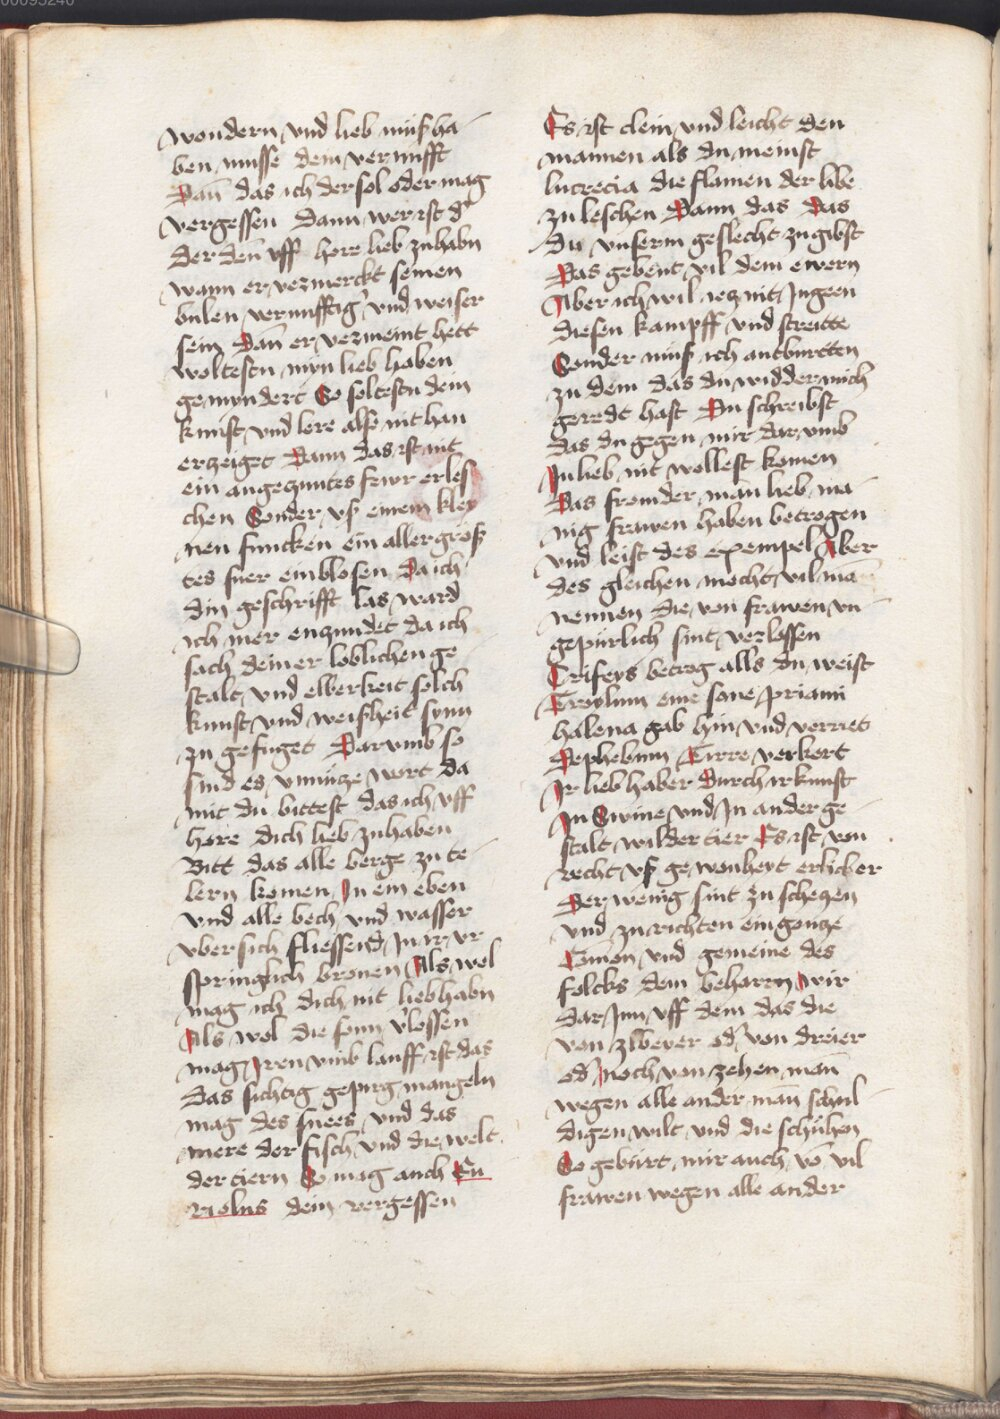 00095240
wondern vnd lieb muͦß ha
ben musse dem vernufft
Dan̄ das ich der sol oder mag
vergessen Dann wer ist d'
der den̄ vff hore lieb zu habn
wann er vermerckt seinen
bulen vernufftig vnd weiser
sein Dan̄ er vermeint hett
woltestu myn lieb haben
gemyndert So soltestu dein
kunst vnd lere also nit han
erzeiget Dann das ist nit
ein angezuntes fewr erles
chen Sonder vß einem kley
nen funcken ein aller größ
tes fuer em blosen Da ich
din geschrifft las ward
ich mer enzundet da ich
sach deiner loblichen ge
stalt vnd elberkeit solch
kunst vnd weißheit synn
zu gefuget Darvmb so
sind es vnnütze wort da
mit du bittest das ich vff
hore dich lieb zu haben
Bitt das alle berge zu te
lern komen In ein eben
vnd alle bech vnd wasser
vber sich fliessend In ir vr
springlich bronen Als wol
mag ich dich nit lieb habn
Als wol die sonn v'lossen
mag Iren vmb lauff ist das
das sichtig gepirg mangeln
mag des snees vnd das
mere der fisch vnd die welt
der tiern So mag auch Eu
riolus dein vergessen
Es ist clein vnd leicht den
mannen als du meinst
lucrecia die flamen der libe
zu leschen Dann das Das
du vnserm geslecht zu gibst
Das gebent vil dem ewern
Aber ich wil iez nit Ingeen
diesen kampff vnd streitte
Sonder muͦß ich antburtten
zu dem das du widder mich
geredt hast Du schreibst
das du gegen mir dar vmb
In lieb nit wollest komen
Das fromder man lieb ma
nig frawen haben betrogen
vnd leist des exempel Aber
des gleichen mecht vil man
nennen die von frawen vn
gepürlich sint verlossen
Crifeys betrog alls du weist
Troylum eine sone priami
halena gab hin vnd verriet
Dephebum Circe verkert
Ir lieb haber durch ir kunst
In Swine vnd In ander ge
stalt wilder tier Es ist von
recht vß gewonheyt erlicher
Der wenig sint zu schezen
vnd zu richten ein gantze
Comon vnd gemeine des
folcks dem beharrn wir
dar Inn vff dem das die
von zlbeyer od' von dreier
od' noch von zehen man
wegen alle ander man schul
digen wilt vnd die schühen
So gebürt mir auch vō vil
frawen wegen alle ander